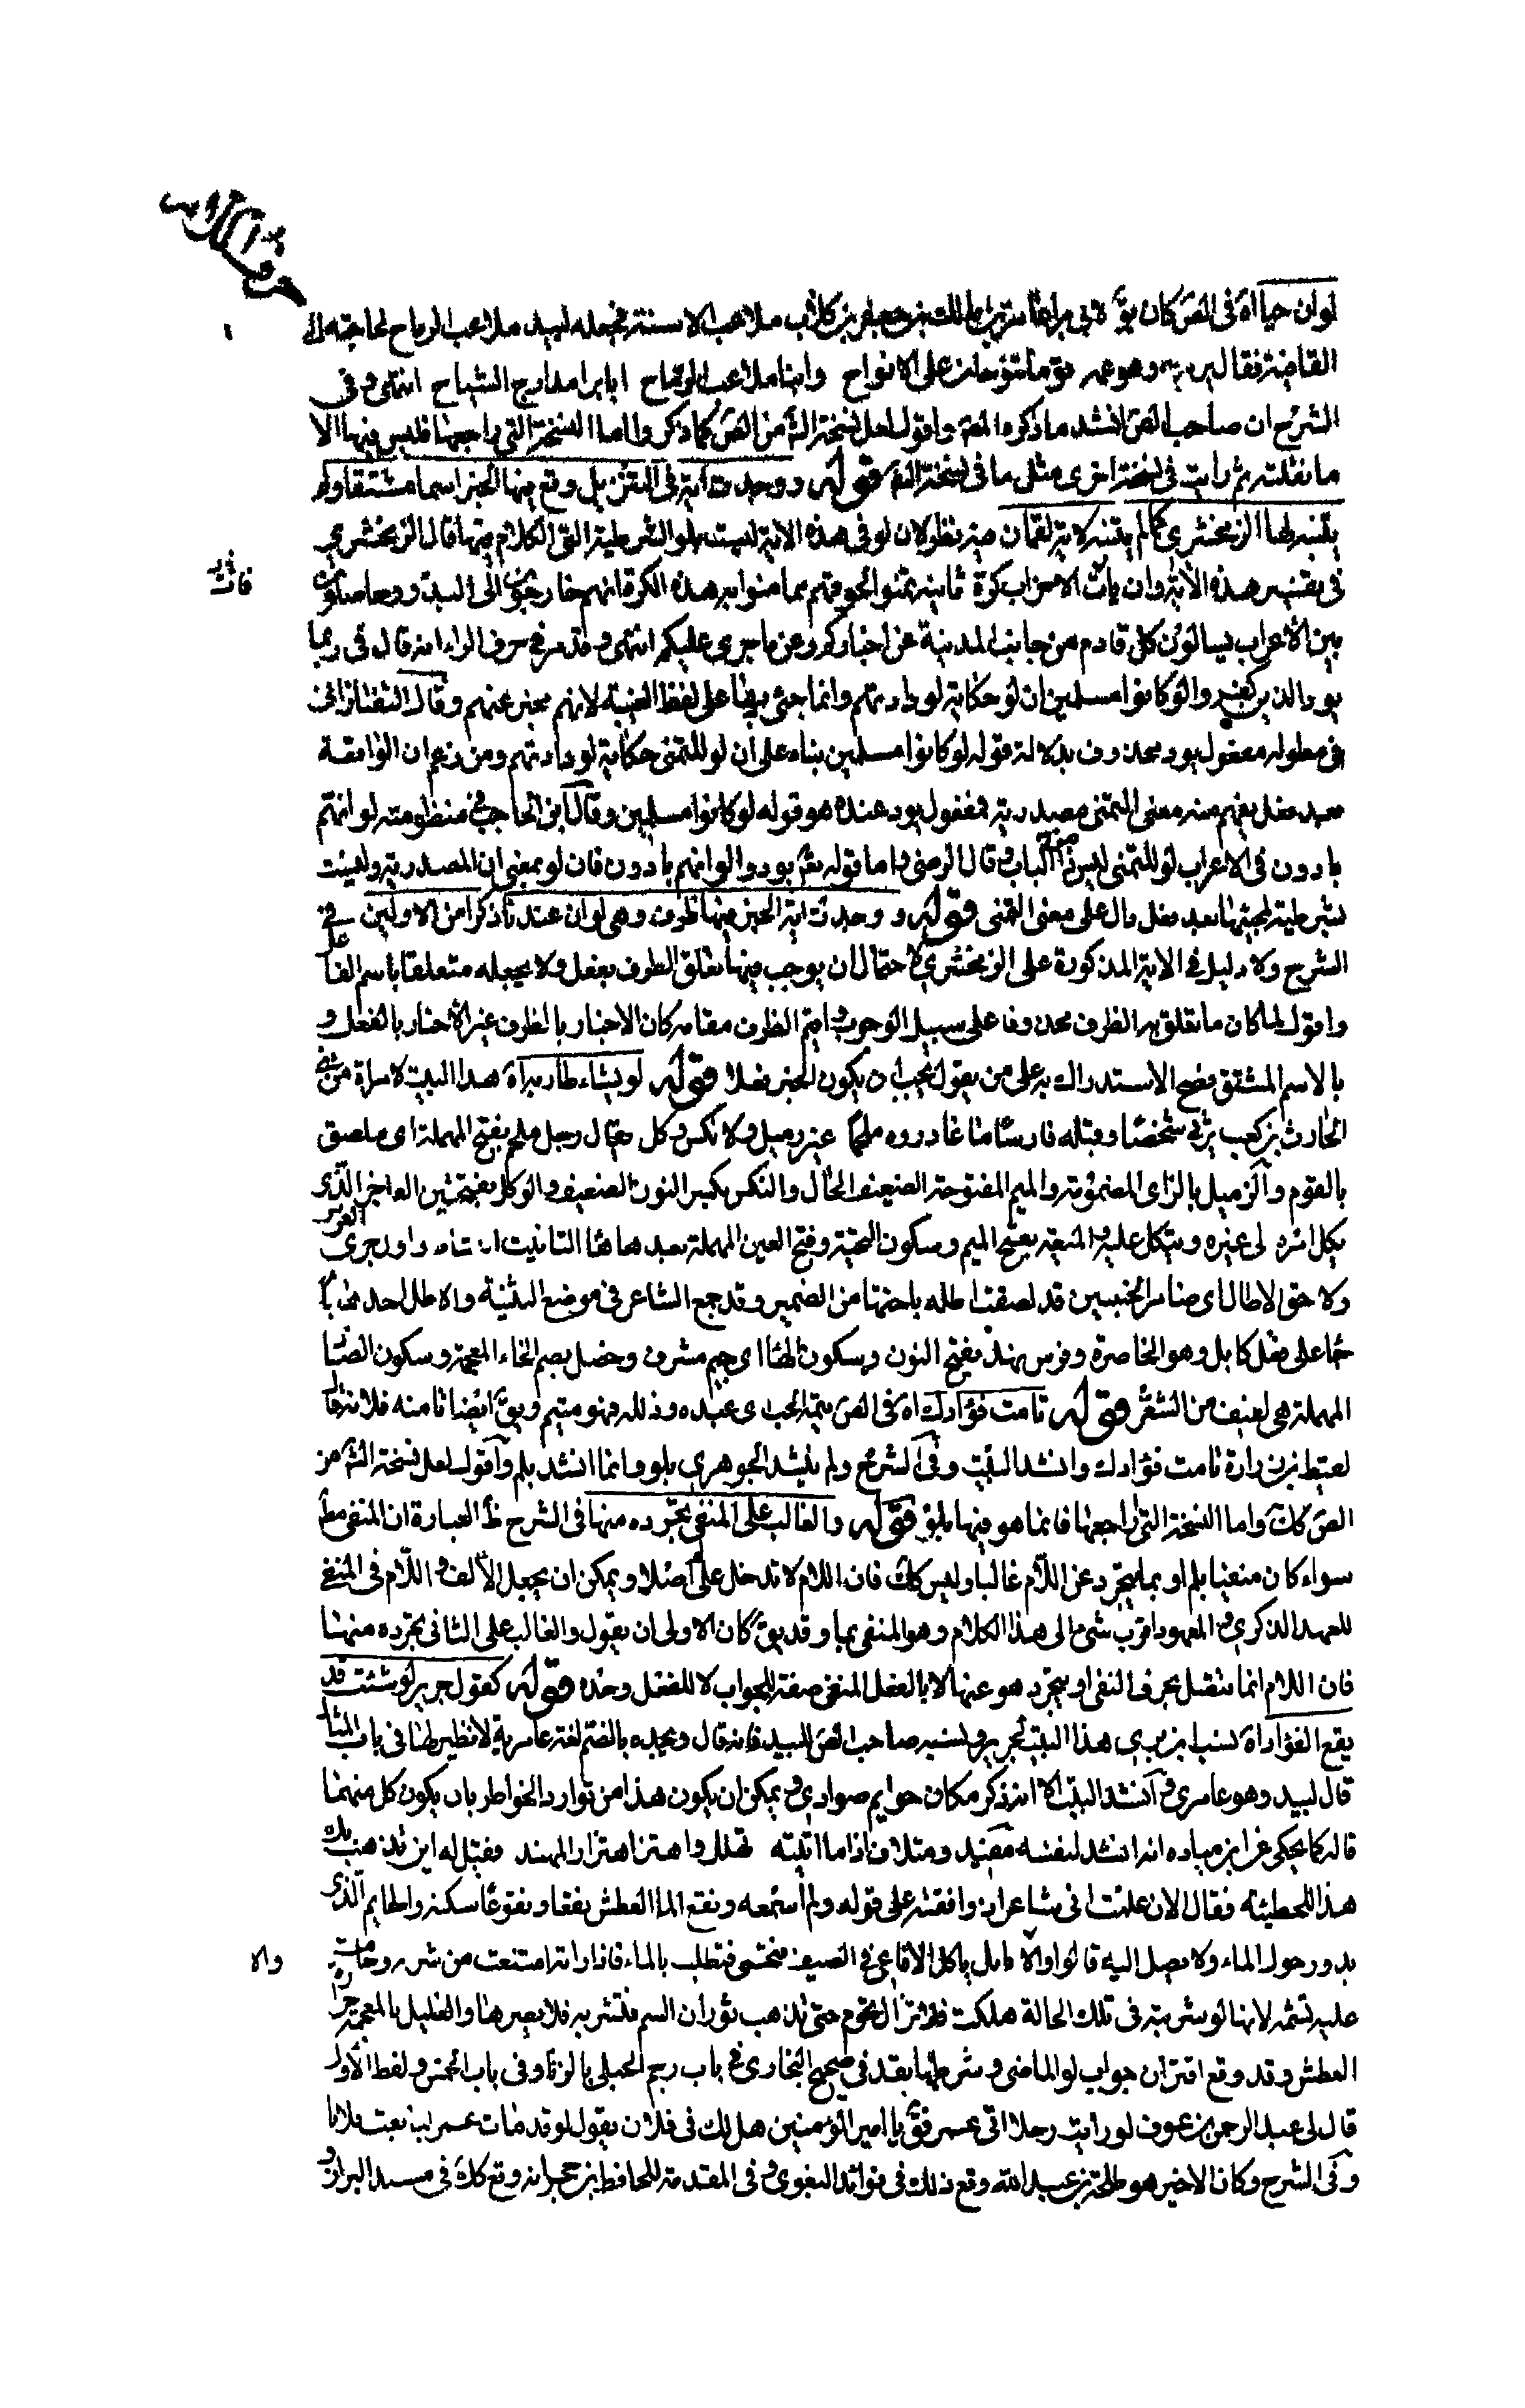 لو ان حيا اه فى الص كان يق لابى براء عامر بن مالك بن جعفر بن كلاب ملاعب الاسنة فجعله لبيد ملاعب الرماح لحاجته الى
القافية فقال يرثيه وهو عمه قوما تنوحان على الانواح وابنا ملاعب الرماح ابا براء مدره الشياح انتهى وفى
الشرح ان صاحب الص انشد ما ذكره المص واقول لعل نسخة الش من الص كما ذكر واما النسخة التى راجعتها فليس فيها الا
ما نقلته ثم رايت فى نسخة اخرى مثل ما فى نسخة الش قوله ووجدت اية فى التنزيل وقع فيها الخبر اسما مشتقا ولم
يتنبه لها الزمخشرى كما لم يتنبه لاية لقمان فيه نظر لان لو فى هذه الاية ليست لو الشرطية التى الكلام فيها قال الزمخشرى
فى تفسير هذه الاية وان يات الاحزاب كرة ثانية تمنوا لخوفهم مما منوا به هذه الكرة انهم خارجون الى البدو وحاصلون
بين الاعراب يسالون كل قادم من جانب المدينة عن اخباركم وعن ما جرى عليكم انتهى وقد مر فى حرف الراء انه قال فى ربما
يود الذين كفروا لو كانوا مسلمين ان لو حكاية لودادتهم وانما جئ بها على لفظ الغيبة لانهم مخبر عنهم وقال التفتازانى
فى مطوله مفعول يود محذوف بدلالة قوله لو كانوا مسلمين بناء على ان لو للتمنى حكاية لودادتهم ومن زعم ان الواقعة
بعد فعل يفهم منه معنى التمنى مصدرية فمفعول يود عنده هو قوله لو كانوا مسلمين وقال ابن الحاجب فى منظومته لو انهم
بادون فى الاعراب لو للتمنى ليس من ذا الباب وقال الرضى واما قوله تعـ يودوا لو انهم بادون فان لو بمعنى ان المصدرية وليست
بشرطية لمجيئها بعد فعل دال على معنى التمنى قوله ووجدت اية الخبر فيها ظرف وهى لو ان عندنا ذكرا من الاولين فى
الشرح ولا دليل فى الاية المذكورة على الزمخشرى لاحتمال ان يوجب فيها تعلق الظرف بفعل ولا يجعله متعلقا باسم الفاعل
واقول لما كان ما تعلق به الظرف محذوفا على سبيل الوجوب واقيم الظرف مقامه كان الاخبار بالظرف غير الاخبار بالفعل و
بالاسم المشتق فصح الاستدراك به على من يقول يجب ان يكون الخبر فعلا قوله لو يشاء طار به اه هذا البيت لامراة من بنى
الحارث بن كعب يرثى شخصا وقبله فارسا ما غادروه ملحما غير زميل ولا نكس وكل يقال رجل ملحم بفتح المهملة اى ملصق
بالقوم والزميل بالزاى المضمومة والميم المفتوحة الضعيف الحال والنكس بكسر النون الضعيف والوكل بفتحتين العاجز الذى
يكل امره لى غيره ويتكل عليه والميعة بفتح الميم وسكون التحتية وفتح العين المهملة بعدها هاء التانيث النشاط واول جرى الفرس
ولاحق الاطال اى ضامر الجنبين قد لصقت اطله باختها من الضمير وقد جمع الشاعر فى موضع التثنية والاطل احد ما جاء
على فعل كابل وهو الخاصرة وفرس نهد بفتح النون وسكون الهاء اى جسيم مشرف وخصل بضم الخاء المعجمة وسكون الصاد
المهملة هى لفيف من الشعر قوله تامت فؤادك اه فى الص تيمه الحب اى عبده وذلله فهو متيم ويق ايضا تامته فلانة قال
لقيط بن زرارة تامت فؤادك وانشد البيت وفى الشرح ولم ينشد الجوهرى بلو وانما انشد بلم واقول لعل نسخة الش من
الص كك واما النسخة التى راجعتها فانما هو فيها بلو قوله والغالب على المنفى تجرده منها فى الشرح ظ العبارة ان المنفى مط
سواء كان منفيا بلم او بما يتجرد عن اللام غالبا وليس كك فان اللام لا تدخل على لم اصلا ويمكن ان يجعل الالف واللام فى المنفى
للعهد الذكرى والمعهود اقرب شئ الى هذا الكلام وهو المنفى بما وقد يق كان الاولى ان يقول والغالب على الثانى تجرده منها
فان اللام انما تتصل بحرف النفى او يتجرد هو عنها لا بالفعل المنفى صفة للجواب لا للفعل وحده قوله كقول جرير لو شئت قد
نقع الفؤاد اه نسب ابن برى هذا البيت لجرير ونسبه صاحب الص للبيد فانه قال ويجده بالضم لغة عامرية لا نظير لها فى باب المثال
قال لبيد وهو عامرى وانشد البيت الا انه ذكر مكان حوايم صوادى ويمكن ان يكون هذا من توارد الخواطر بان يكون كل منهما
قاله كما يحكى عن ابن ميادة انه انشد لنفسه مفيد ومتلاف اذا ما اتيته تهلل واهتز اهتزاز المهند فقيل له اين تذهب بك
هذا للحطيئة فقال الان علمت انى شاعر اذ وافقته على قوله ولم اسمعه ونقع الماء العطش نقعا ونقوعا سكنه والحايم الذى
يدور حول الماء ولا يصل اليه قالوا والايل ياكل الافاعى فى الصيف فتحمى فتطلب بالماء فاذا راته امتنعت من شربه وحامت
عليه تشمه لانها لو شربته فى تلك الحالة هلكت فلا تزال تحوم حتى يذهب ثوران السم فتشربه فلا يضرها والغليل بالمعجمة حرارة
العطش وقد وقع اقتران جواب لو الماضى وشرطها بقد فى صحيح البخارى فى باب رجم الحبلى بالزنا وفى باب الخمس ولفظ الاول
قال لى عبد الرحمن بن عوف لو رايت رجلا اتى عمر فق يا امير المؤمنين هل لك فى فلان يقول لو قد مات عمر لبايعت فلانا
وفى الشرح وكان الاخير هو طلحة بن عبيد الله وقع ذلك فى فوائد البغوى وفى المقدمة للحافظ ابن حجر انه وقع كك فى مسند البزار و
والا